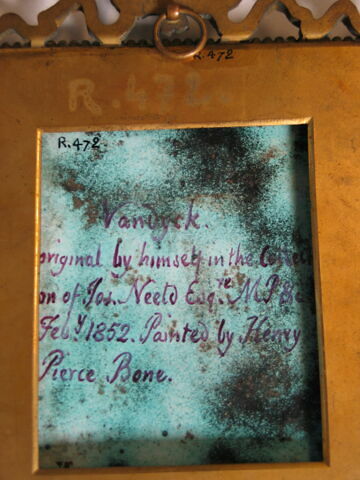 R.472
R.472
R.472.
Vandyck.
original by himself in the Collecti
on of Jos. Neeld Esqre. MP &c
Feby 1852. Painted by Henry
Pierce Bone.